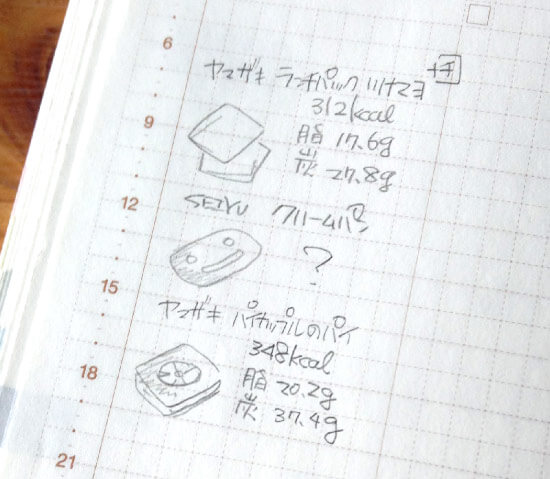 6
ヤマザキ ランチパック ツナマヨ
312kcal
9
脂 17.6g
炭 27.8g
12
SEIYU クリームパン
?
15
ヤマザキ パイナップルのパイ
348kcal
18
脂 20.2g
炭 37.4g
21